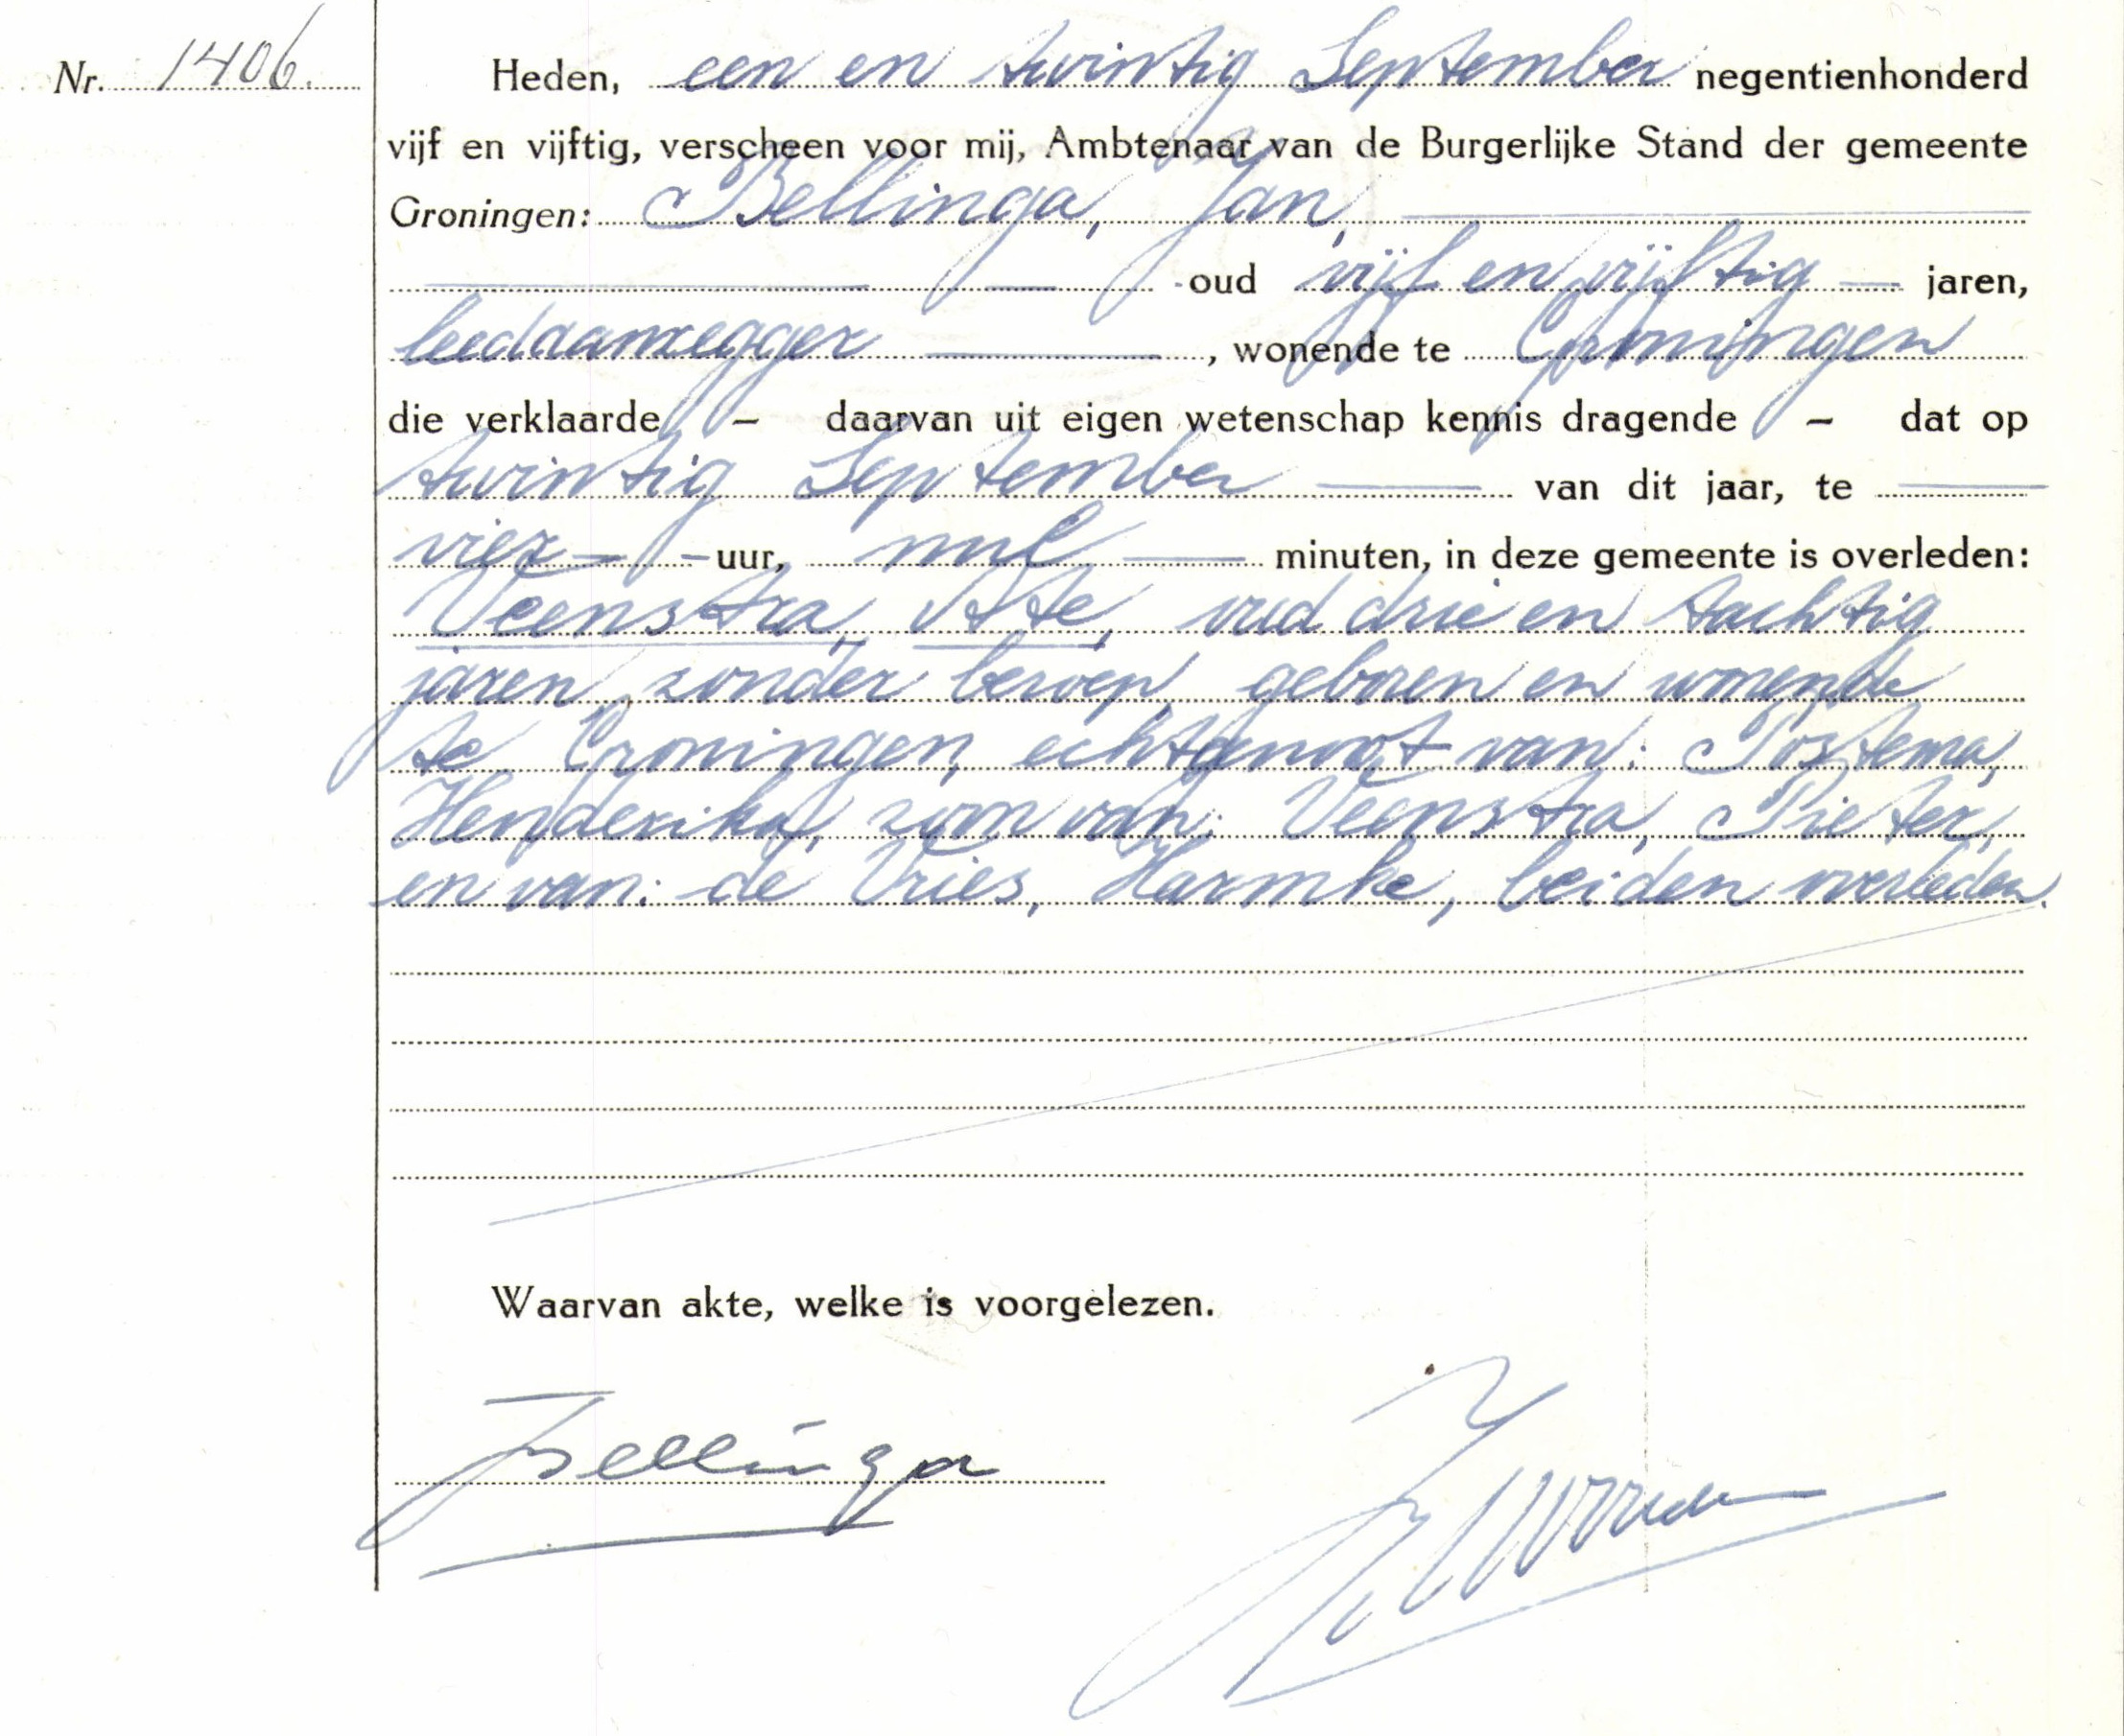 Nr. 1406.
Heden, een en twintig September negentienhonderd
vijf en vijftig, verscheen voor mij, Ambtenaar van de Burgerlijke Stand der gemeente
Groningen: Bellinga, Jan,
oud vijf en vijftig jaren,
leedaanzegger, wonende te Groningen
die verklaarde – daarvan uit eigen wetenschap kennis dragende – dat op
twintig September van dit jaar, te
vier uur, nul minuten, in deze gemeente is overleden:
Veenstra, Atte, oud drie en tachtig
jaren, zonder beroep, geboren en wonende
te Groningen, echtgenoot van: Postema,
Henderika, zoon van: Veenstra, Pieter,
en van: de Vries, Harmke, beiden overleden.
Waarvan akte, welke is voorgelezen.
JBellinga